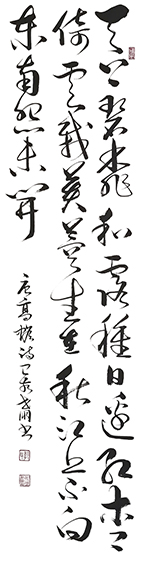 天上碧桃和露種日邊紅杏
倚雲栽芙蓉生在秋江上不向
東風怨未開
唐高蟾詩己亥書